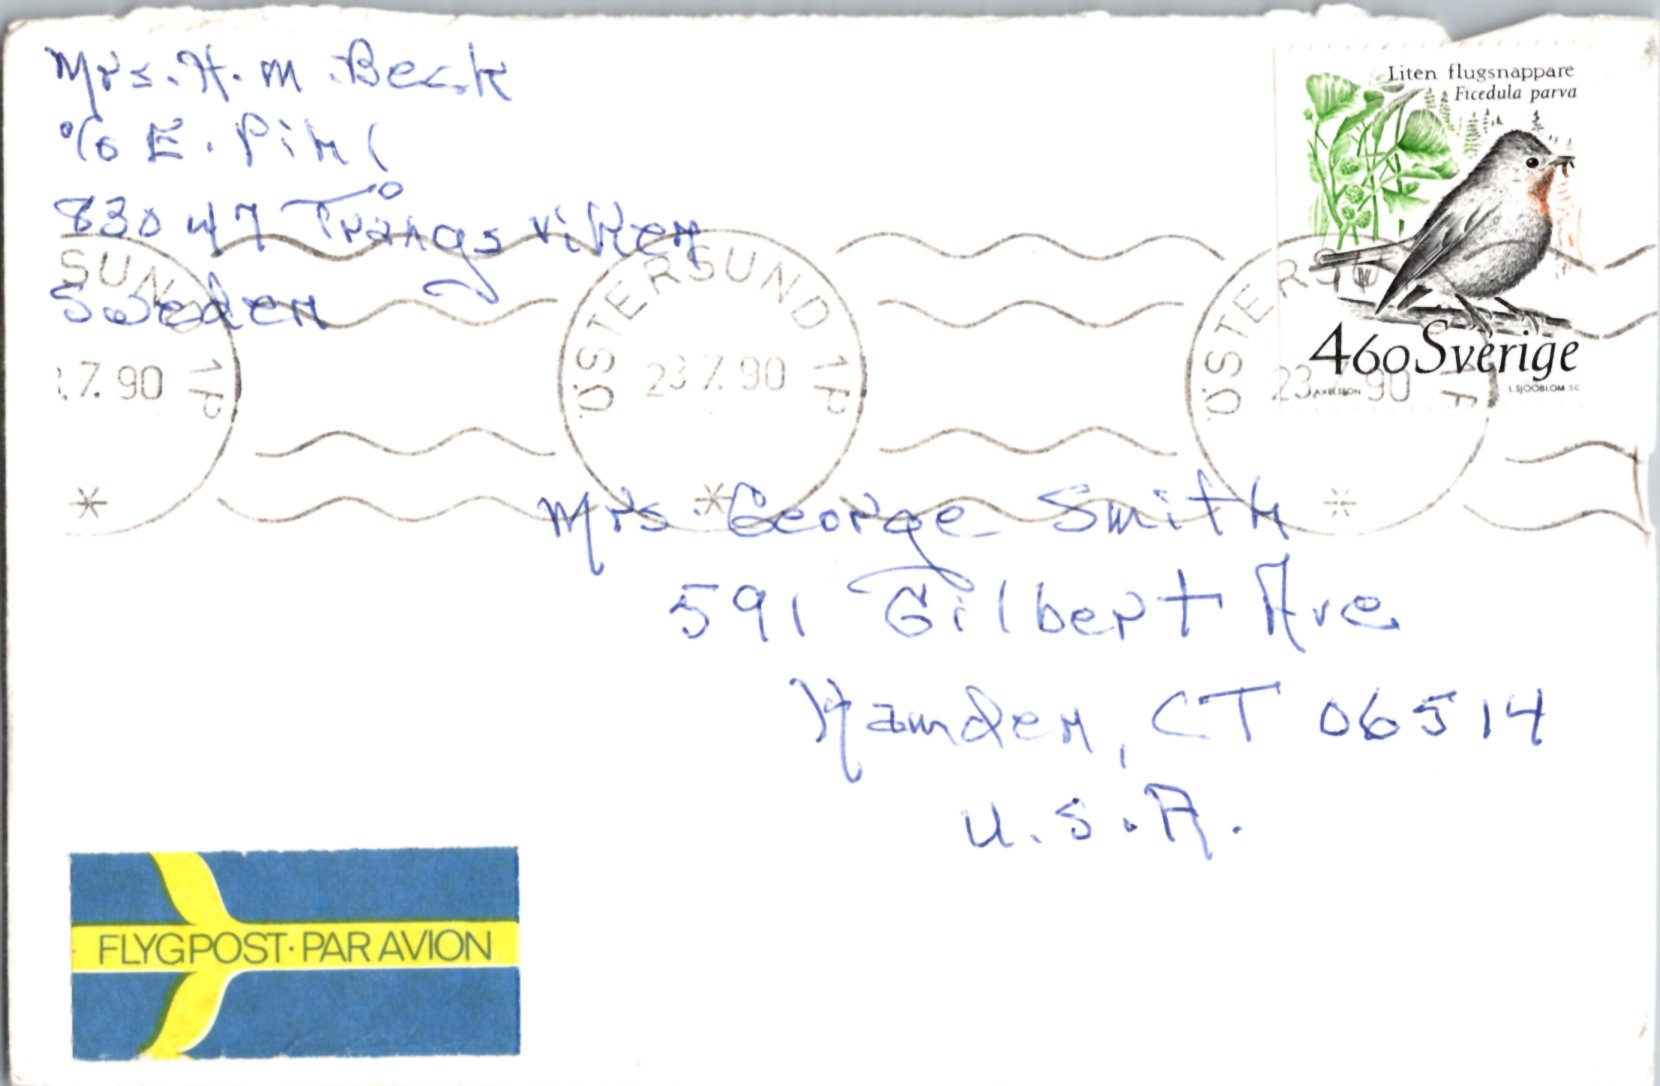 Mrs. H. M. Beck
c/o E. Pihl
830 47 Trångsviken
Sweden
Liten flugsnappare
Ficedula parva
460 Sverige
AXELSSON
L SJÖÖBLOM SC
SUND 1P
.7.90
ÖSTERSUND 1P
23 7.90
ÖSTERSU
23.7.90
Mrs. George Smith
591 Gilbert Ave
Hamden, CT 06514
U.S.A.
FLYGPOST·PAR AVION